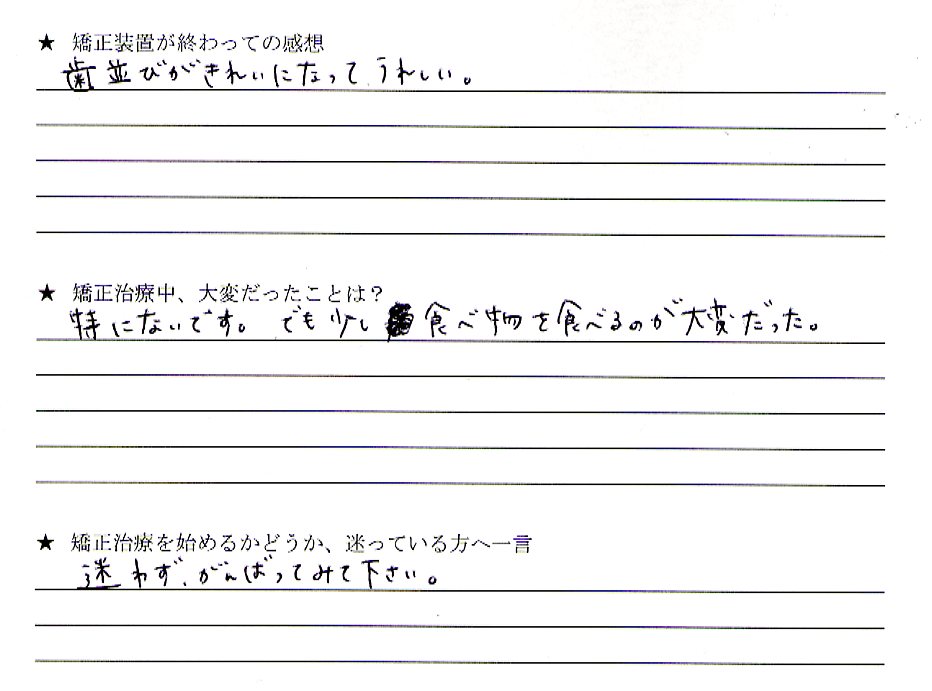 ★ 矯正装置が終わっての感想
歯並びがきれいになって、うれしい。
★ 矯正治療中、大変だったことは？
特にないです。でも少し食べ物を食べるのが大変だった。
★ 矯正治療を始めるかどうか、迷っている方へ一言
迷わず、がんばってみて下さい。